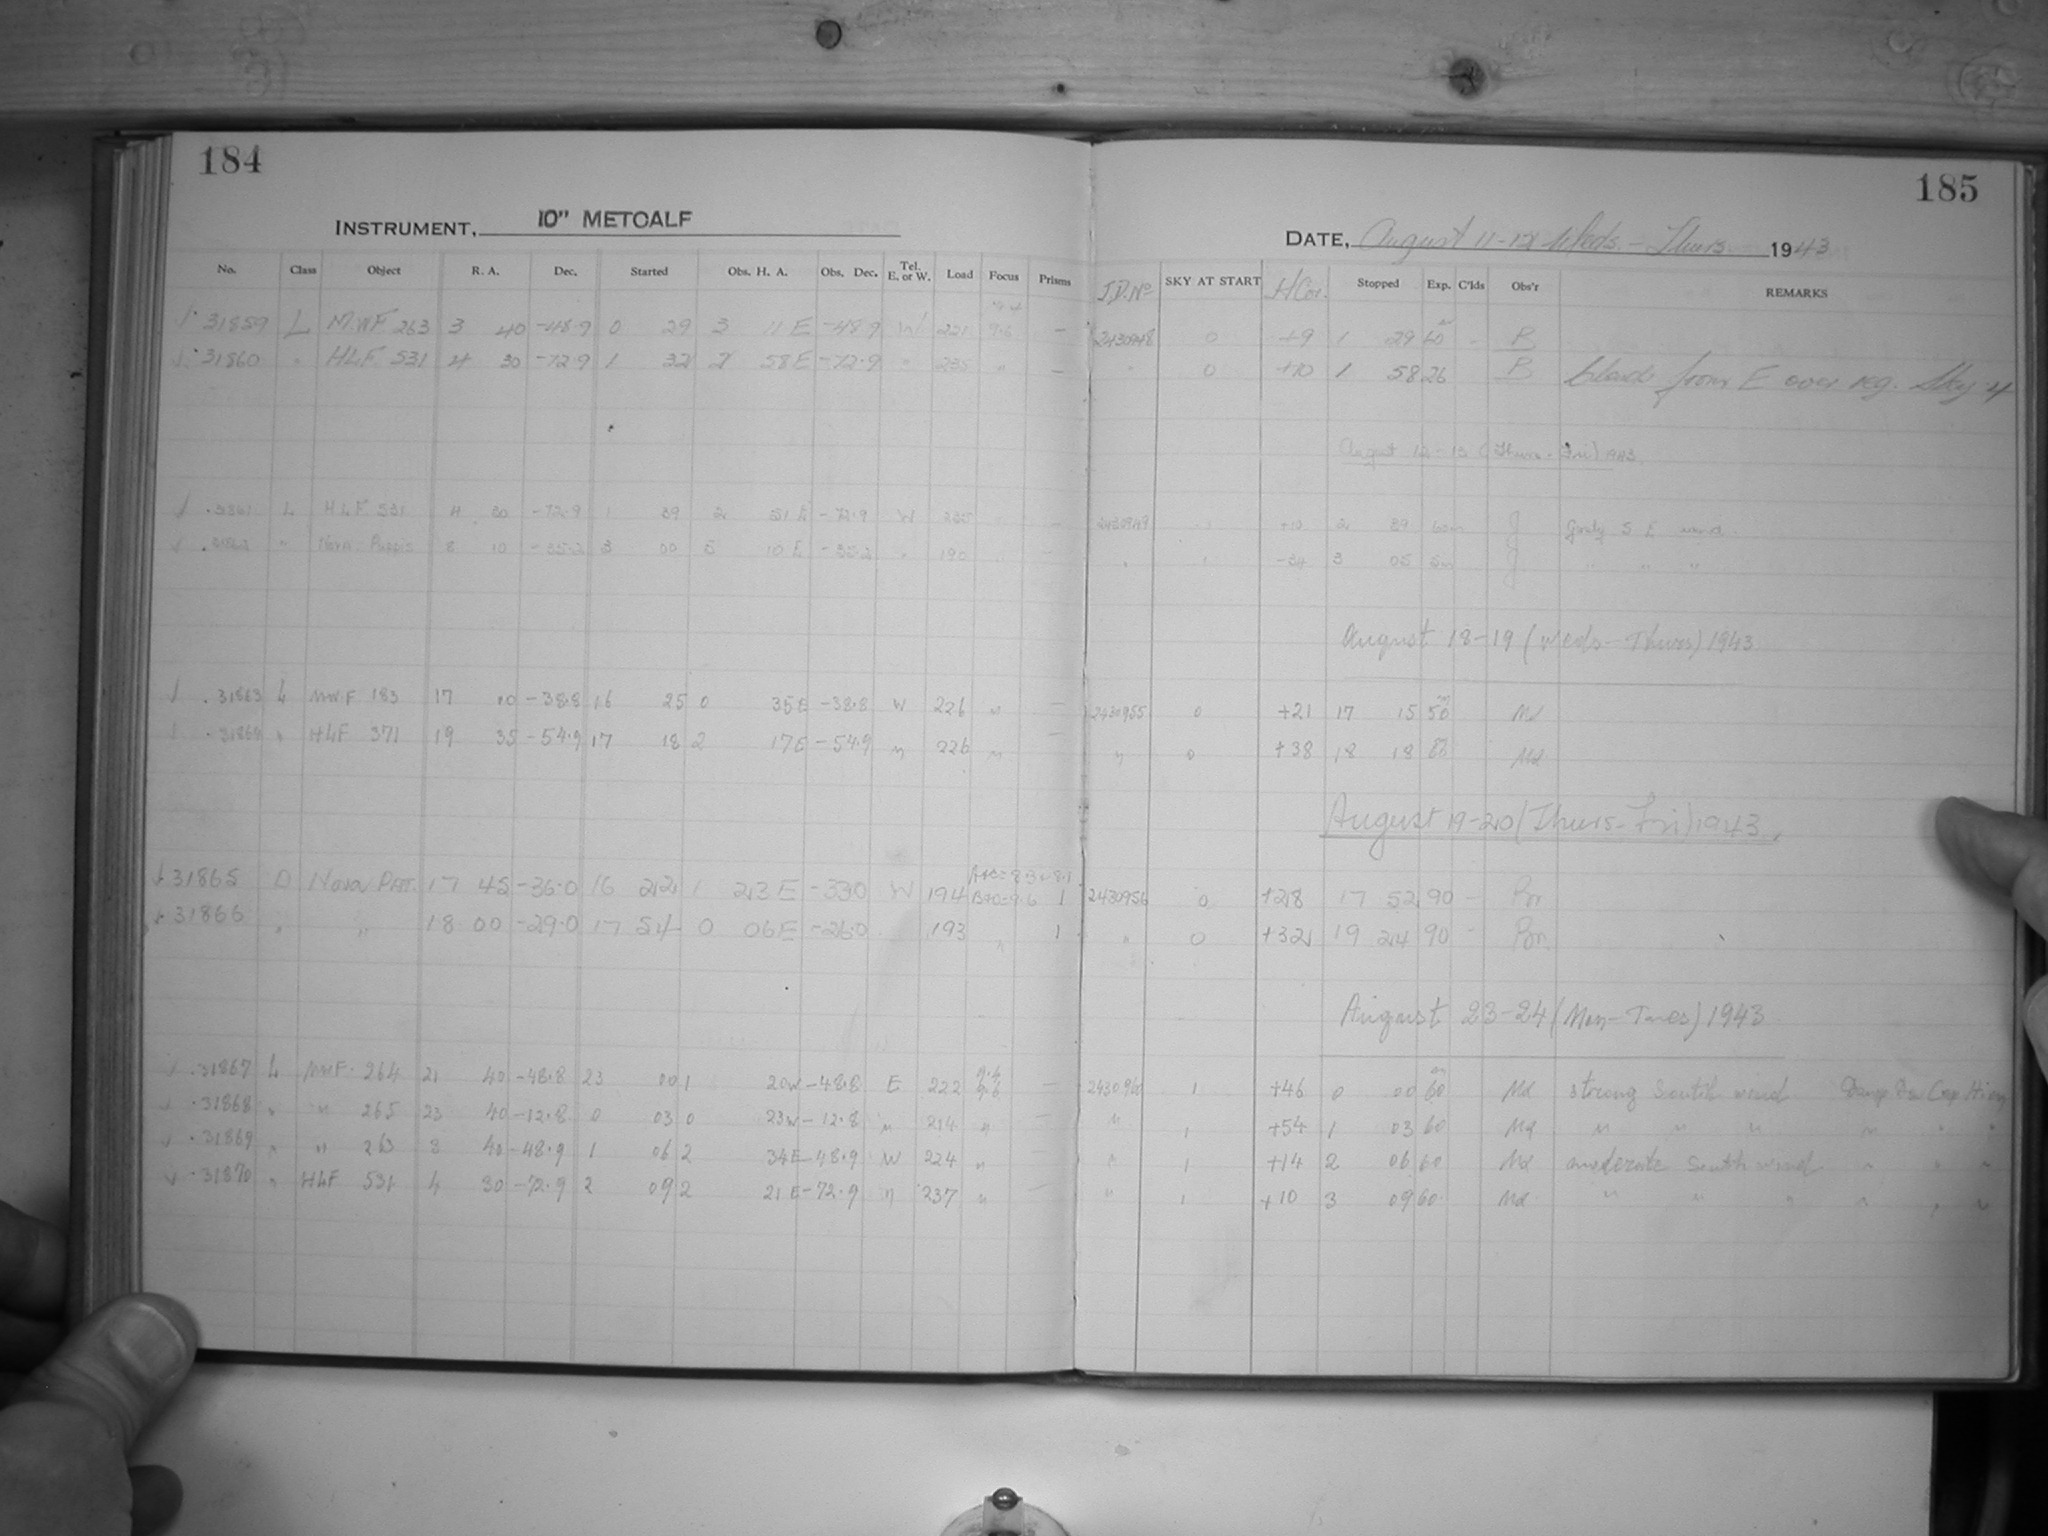 184
INSTRUMENT, 10" METCALF
No. Class Object R. A. Dec. Started Obs. H. A. Obs. Dec. Tel. E. or W. Load Focus Prisms
31859 L MWF 263 3 40 -48.9 0 29 3 11 E -48.9 W 221 9.6 —
31860 " HLF 531 4 30 -72.9 1 32 2 58 E -72.9 " 235 " —
31861 L HLF 531 4 30 -72.9 1 39 2 51 E -72.9 W 235 —
31862 " Nova Puppis 8 10 -35.2 3 00 5 10 E -35.2 " 190 —
31863 L MWF 183 17 10 -38.8 16 25 0 35 E -38.8 W 226 " —
31864 " HLF 371 19 35 -54.9 17 18 2 17 E -54.9 " 226 " —
31865 D Nova Patt. 17 45 -36.0 16 22 1 23 E -33.0 W 194 B+D=9.6 1
31866 " " 18 00 -29.0 17 54 0 06 E -26.0 193 " 1
31867 L MWF 264 21 40 -48.8 23 00 1 20 W -48.8 E 222 9.4 9.6 —
31868 " " 265 23 40 -12.8 0 03 0 23 W -12.8 " 214 " —
31869 " " 263 3 40 -48.9 1 06 2 34 E -48.9 W 224 " —
31870 " HLF 531 4 30 -72.9 2 09 2 21 E -72.9 " 237 " —
185
DATE, August 11-12 Weds. - Thurs. 1943
J.D. No SKY AT START H Cor. Stopped Exp. C'lds Obs'r REMARKS
2430948 0 +9 1 29 60 - B
" 0 +10 1 58 26 B Clouds from E over reg. Sky 4
August 12-13 (Thurs - Fri) 1943
2430949 1 +10 2 39 60m J Gusty S E wind
" 1 -34 3 05 5m J " " "
August 18-19 (Weds - Thurs) 1943
2430955 0 +21 17 15 50 Md
" 0 +38 18 18 60 Md
August 19-20 (Thurs - Fri) 1943
2430956 0 +28 17 52 90 - Bn
" 0 +32 19 24 90 - Bn
August 23-24 (Mon - Tues) 1943
2430960 1 +46 0 00 60 Md strong South wind Damp Dew Cap
" 1 +54 1 03 60 Md " " " " " "
" 1 +14 2 06 60 Md moderate South wind " " "
" 1 +10 3 09 60 Md " " " " " "